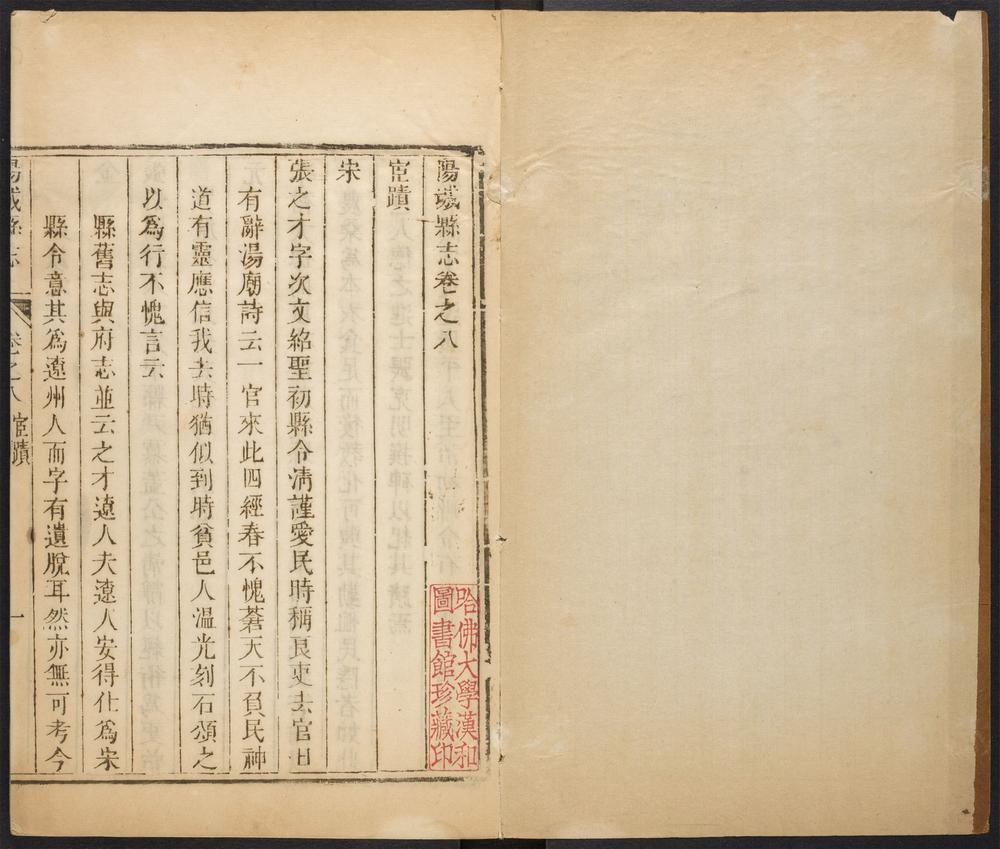 陽城縣志卷之八
宦蹟
宋
張之才字次文紹聖初縣令淸謹愛民時稱良吏去官日
有辭湯廟詩云一官來此四經春不愧蒼天不負民神
道有靈應信我去時猶似到時貧邑人溫光刻石頌之
以爲行不愧言云
縣舊志與府志並云之才遼人夫遼人安得仕爲宋
縣令意其爲遼州人而字有遺脫耳然亦無可考今
陽城縣志
卷之八 宦蹟
一
哈佛大學漢和
圖書館珍藏印